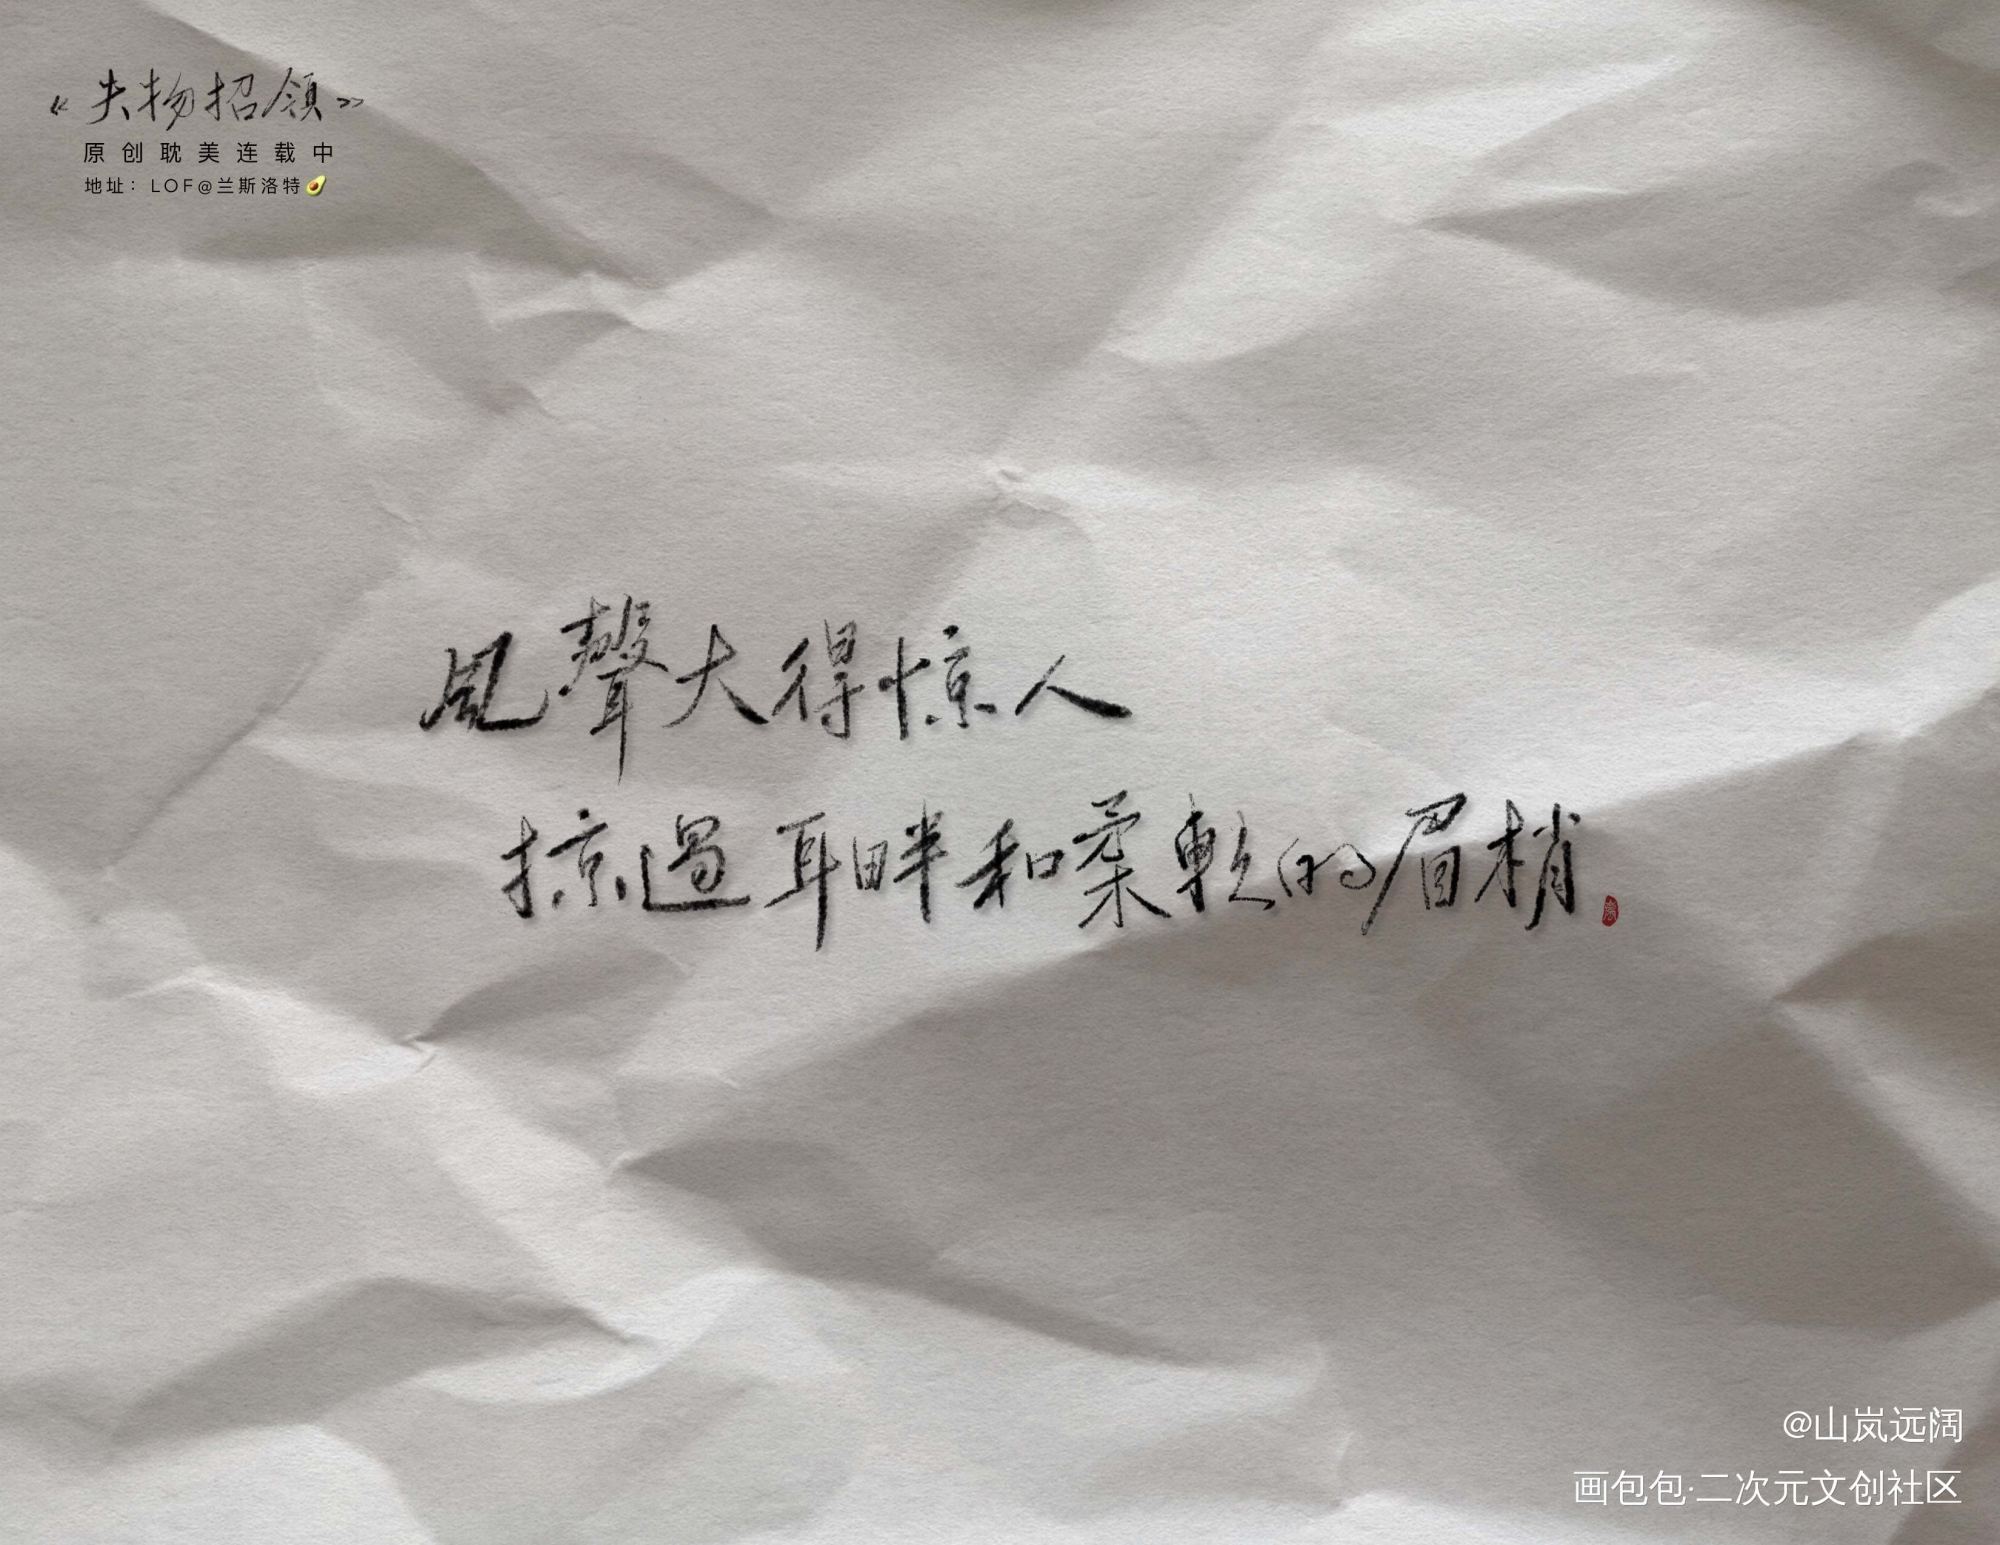 《失物招领》
原创耽美连载中
地址：LOF@兰斯洛特🥑
风聲大得惊人
掠過耳畔和柔軟的眉梢。
@山岚远阔
画包包·二次元文创社区